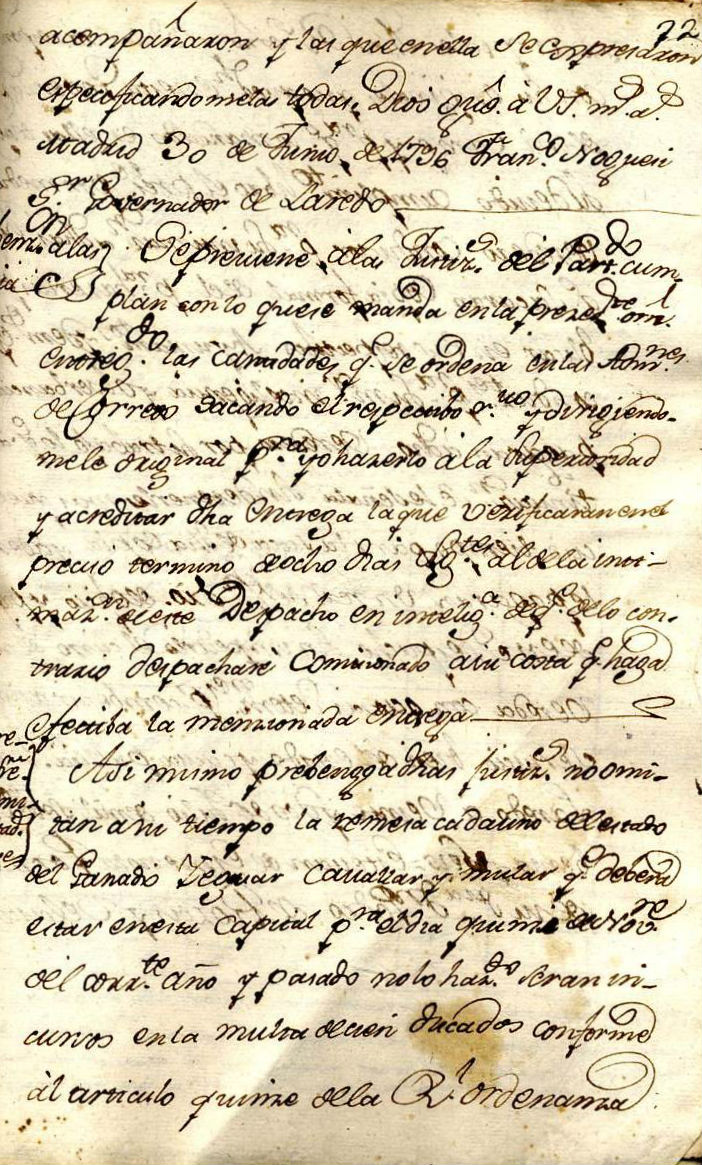 22
acompañaron y las que en ella se conpresaron
especificandomelas todas. Dios gue. à VS. ms. as.
Madrid 30 de Junio de 1796 Franco. Noguei
Sr. Governador de Laredo
Se previene à las Justiz.s del Partdo. cum-
plan con lo que se manda en la prezete. orn.
entregdo. las cantidades q.e se ordena en las Admnes.
de Correo sacando el respectibo r.vo y dirigiendo-
mele original p.ra yo hazerlo à la Superioridad
y acreditar dha entrega la que verificaràn en el
preciso termino de ocho dias sigtes. al de la inti-
maz.n de este Despacho en intelig.a de q.e de lo con-
trario despacharè Comisionado a su costa q.e haga
efectiba la mensionada entrega
Asi mismo prebengo à dhas Justiz.s no omi-
tan a su tiempo la remesa cada uno del estado
del Ganado Yeguar Cavallar y mular q.e deberà
estar en esta Capital p.ra el dia quinze de Novre.
del corr.te año y pasado no lo haz.do seran in-
cursos en la multa de cien ducados conforme
àl articulo quinze de la Rl. ordenanza